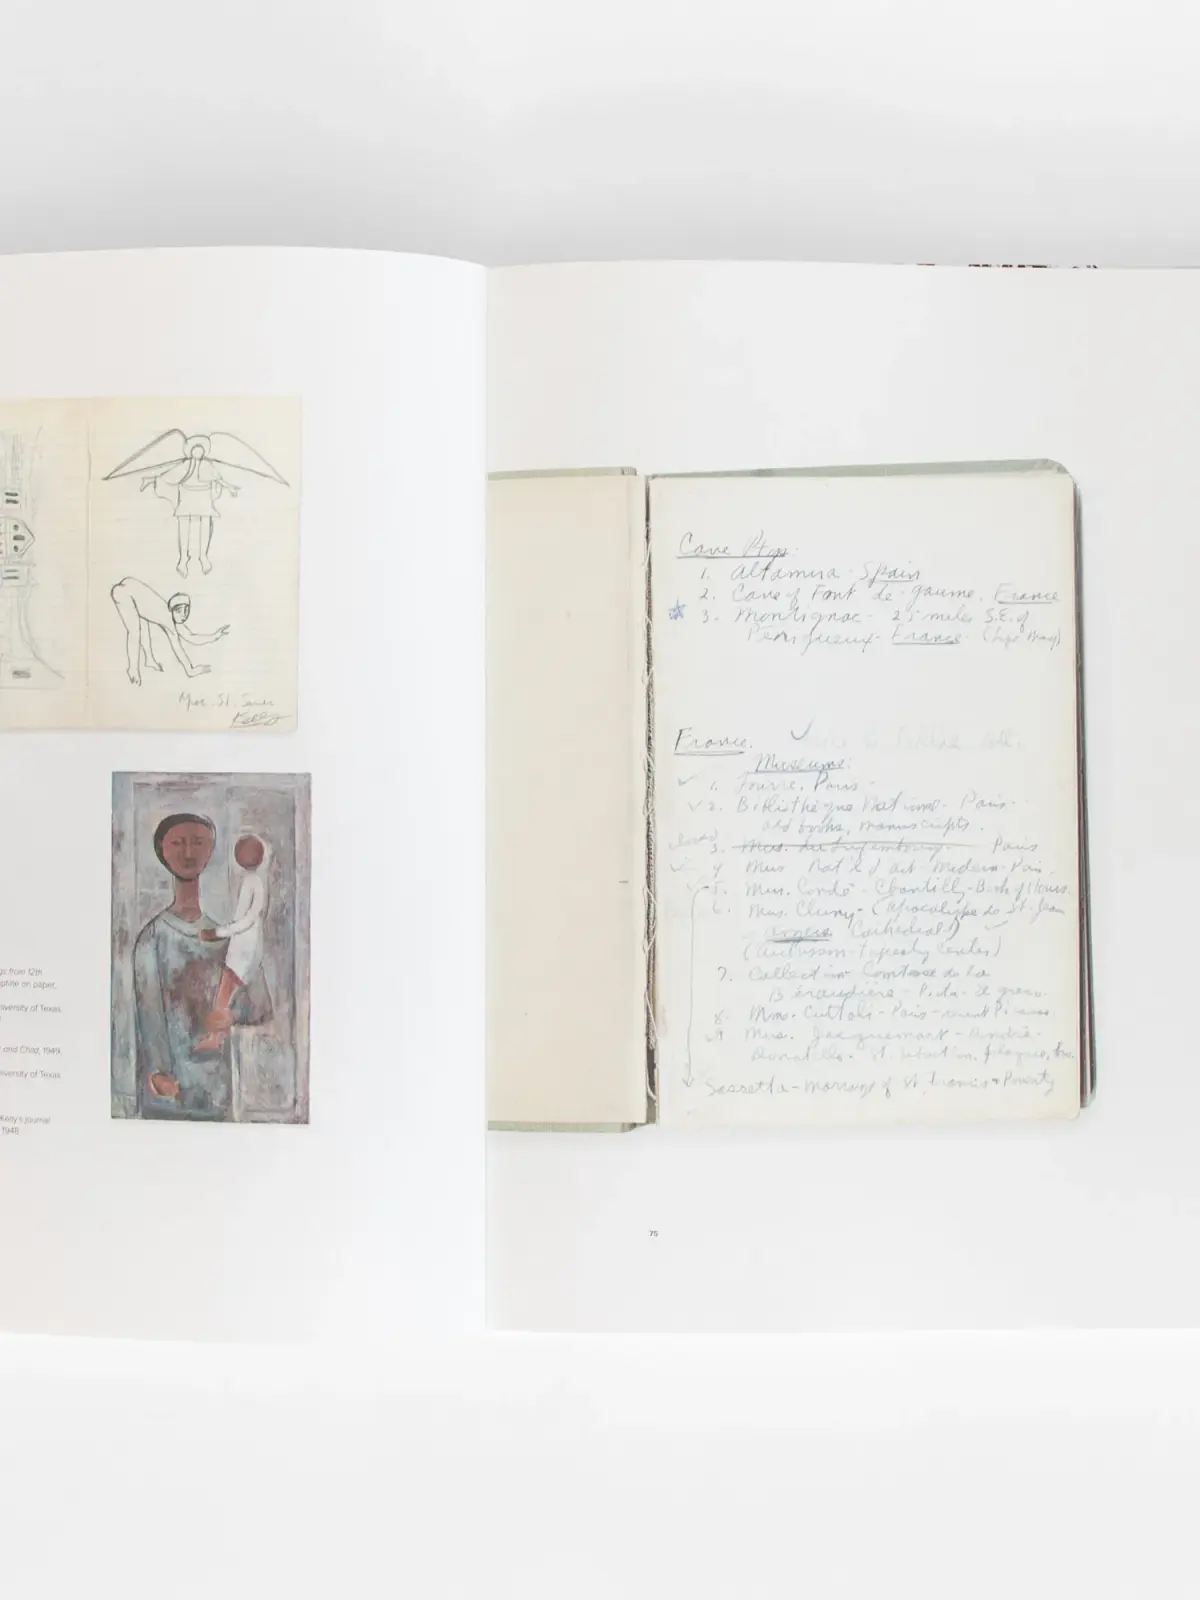 Mar. St. Sever
Kelly
gs from 12th
phite on paper,
niversity of Texas
and Chad, 1949.
niversity of Texas
Kelly's journal
1948
Cave Ptgs:
1. Altamira Spain
2. Cave of Font de-gaume. France
3. Montignac - 25 miles S.E. of
Périgueux - France.
France.
Museums:
1. Louvre, Paris -
2. Bibliothèque National - Paris -
old books, manuscripts.
closed 3. Mus. du Luxembourg - Paris
4 Mus Nat'l d'art Modern - Paris.
5. Mus. Condé - Chantilly - Book of Hours.
6. Mus. Cluny - (Apocalypse de St. Jean
Angers Cathedral)
(Aubusson - Tapestry Center)
7. Collection Comtesse de la
Béraudière -
8. Mme. Cuttoli - Paris - recent Picasso
9 Mus. Jacquemart - André -
Donatello - St. Sebastian, plaque,
Sassetta - Marriage of St. Francis + Poverty
75